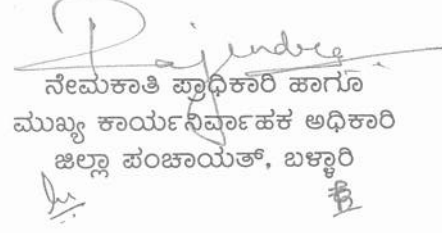 ನೇಮಕಾತಿ ಪ್ರಾಧಿಕಾರಿ ಹಾಗೂ
ಮುಖ್ಯ ಕಾರ್ಯನಿರ್ವಾಹಕ ಅಧಿಕಾರಿ
ಜಿಲ್ಲಾ ಪಂಚಾಯತ್, ಬಳ್ಳಾರಿ